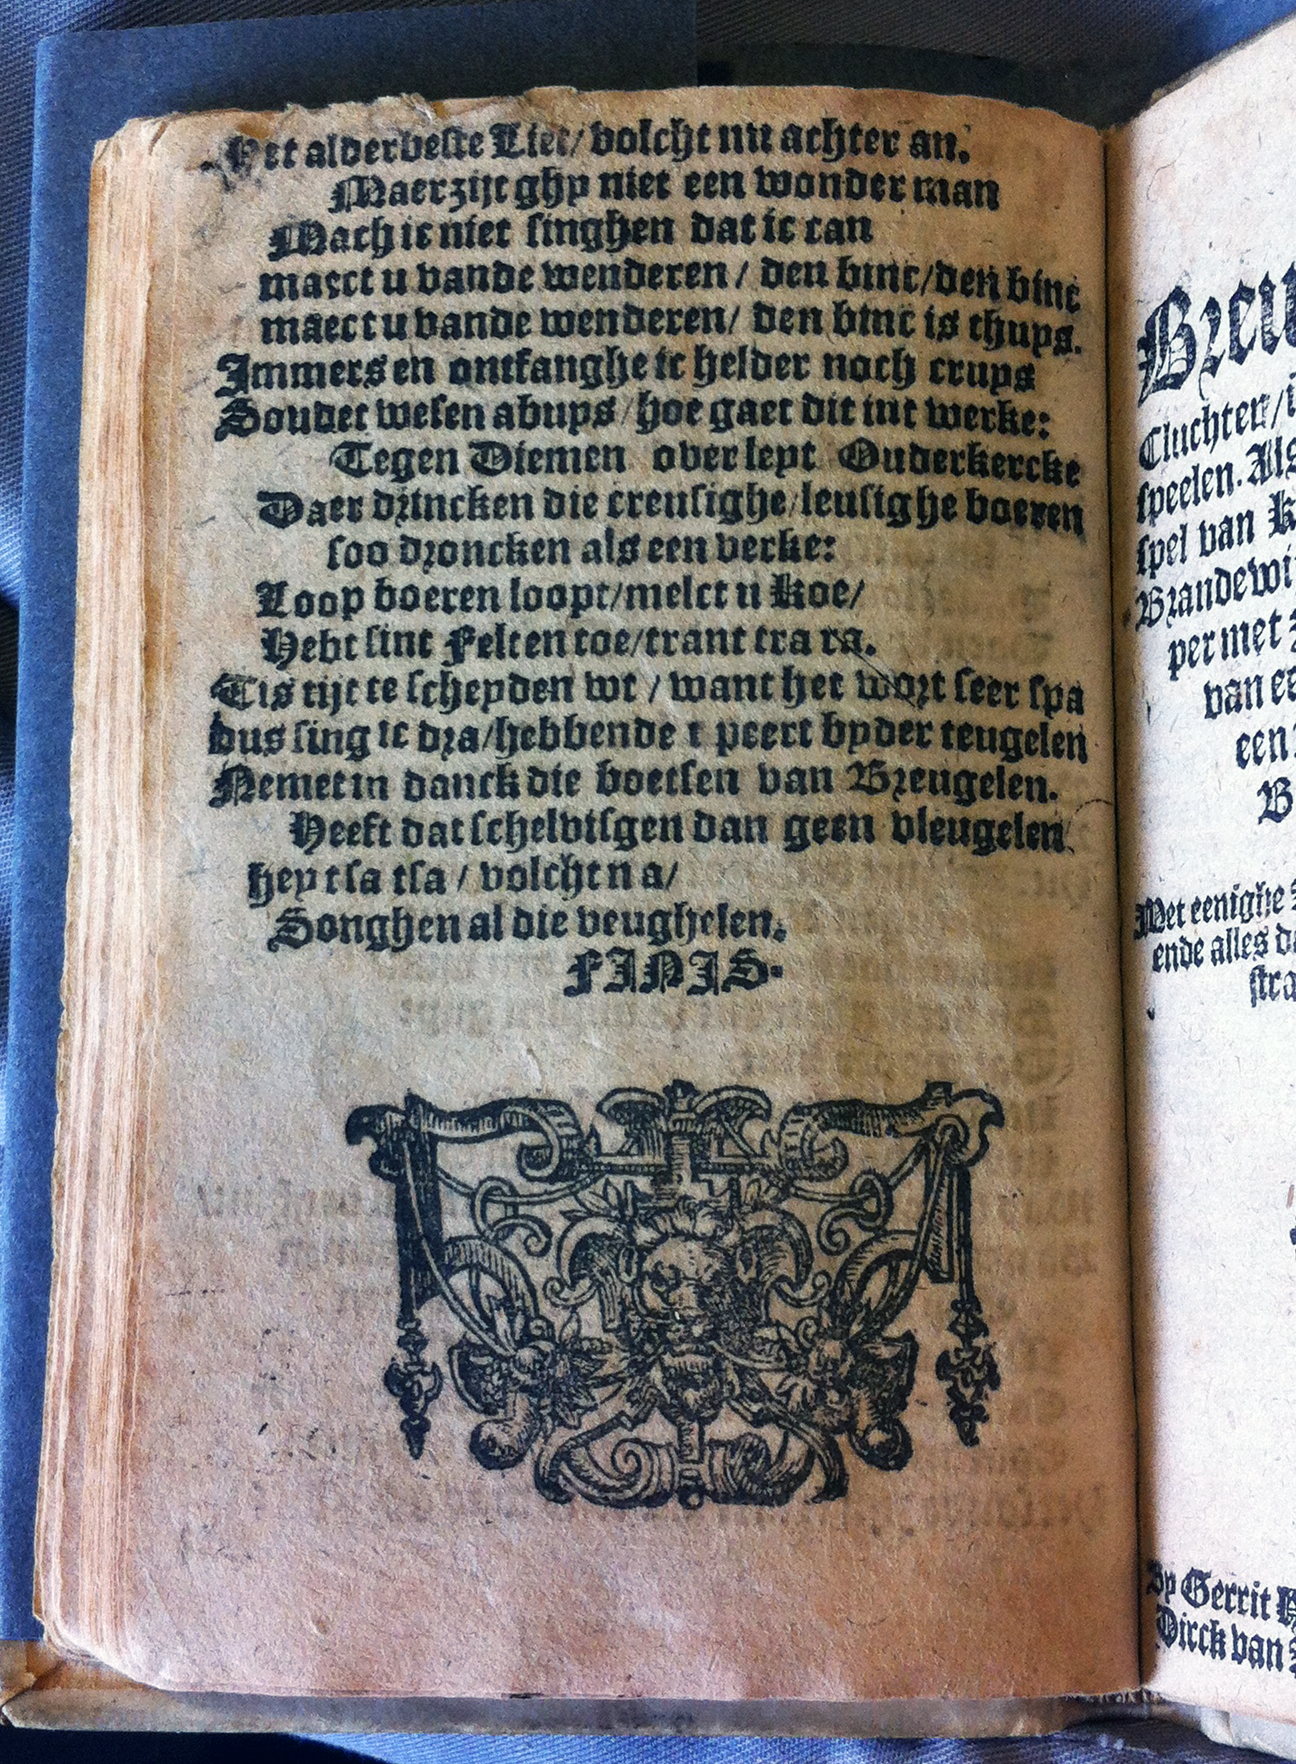 Het alderbeste Liet/ volcht nu achter an.
Maer zijt ghy niet een wonder man
Mach ic niet singhen dat ic can
maect u vande wenderen / den binc/den binc
maect u vande wenderen/ den binc is thuys.
Immers en ontfanghe ic helder noch cruys
Soudet wesen abuys/hoe gaet dit int werke:
Tegen Diemen over leyt Ouderkercke
Daer drincken die creusighe/leusighe boeren
soo droncken als een verke:
Loop boeren loopt/melct u koe/
Hebt sint Felten toe/trant tra ra.
Tis tijt te scheyden wt / want het wort seer spa
dus sing ic dra/hebbende t peert byder teugelen
Nemet in danck die boetsen van Breugelen.
Heeft dat schelvisgen dan geen vleugelen
hey tsa tsa / volcht na/
Songhen al die veughelen.
FINIS.
Cluchten/
speelen. Als
spel van
Brandewi
per met
van ee
een
B
Met eenighe
ende alles
stra
By Gerrit
Dirck van